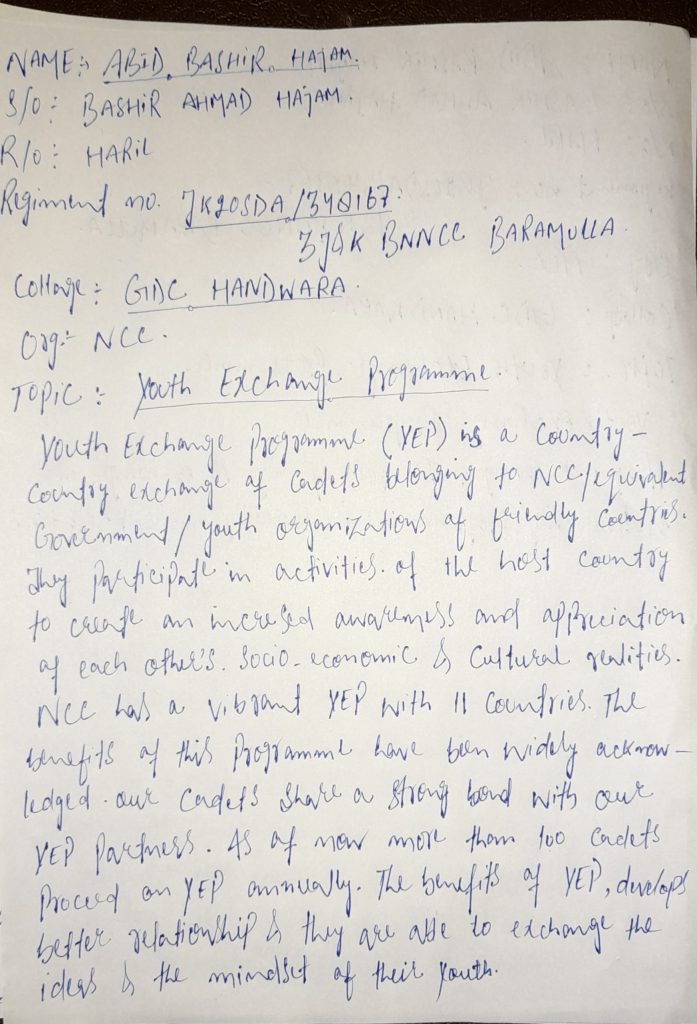 NAME :- ABID. BASHIR. HAJAM.
S/O : BASHIR AHMAD HAJAM.
R/O : HARIL
Regiment no. JK20SDA/348167.
3J&K BNNCC BARAMULLA.
Collage : GDC HANDWARA.
Org :- NCC.
TOPIC : Youth Exchange Programme.
Youth Exchange Programme (YEP) is a Country-
Country exchange of Cadets belonging to NCC/equivalent
Government/youth organizations of friendly Countries.
They participate in activities. of the host country
to create an incresed awareness and appreciation
of each other's. Socio-economic & Cultural realities.
NCC has a vibrant YEP with 11 Countries. The
benefits of this Programme have been widely acknow-
ledged. our Cadets share a strong bond with our
YEP Partners. As of now more than 100 Cadets
Proceed on YEP annually. The benefits of YEP, develops
better relationship & they are able to exchange the
ideas & the mindset of their youth.